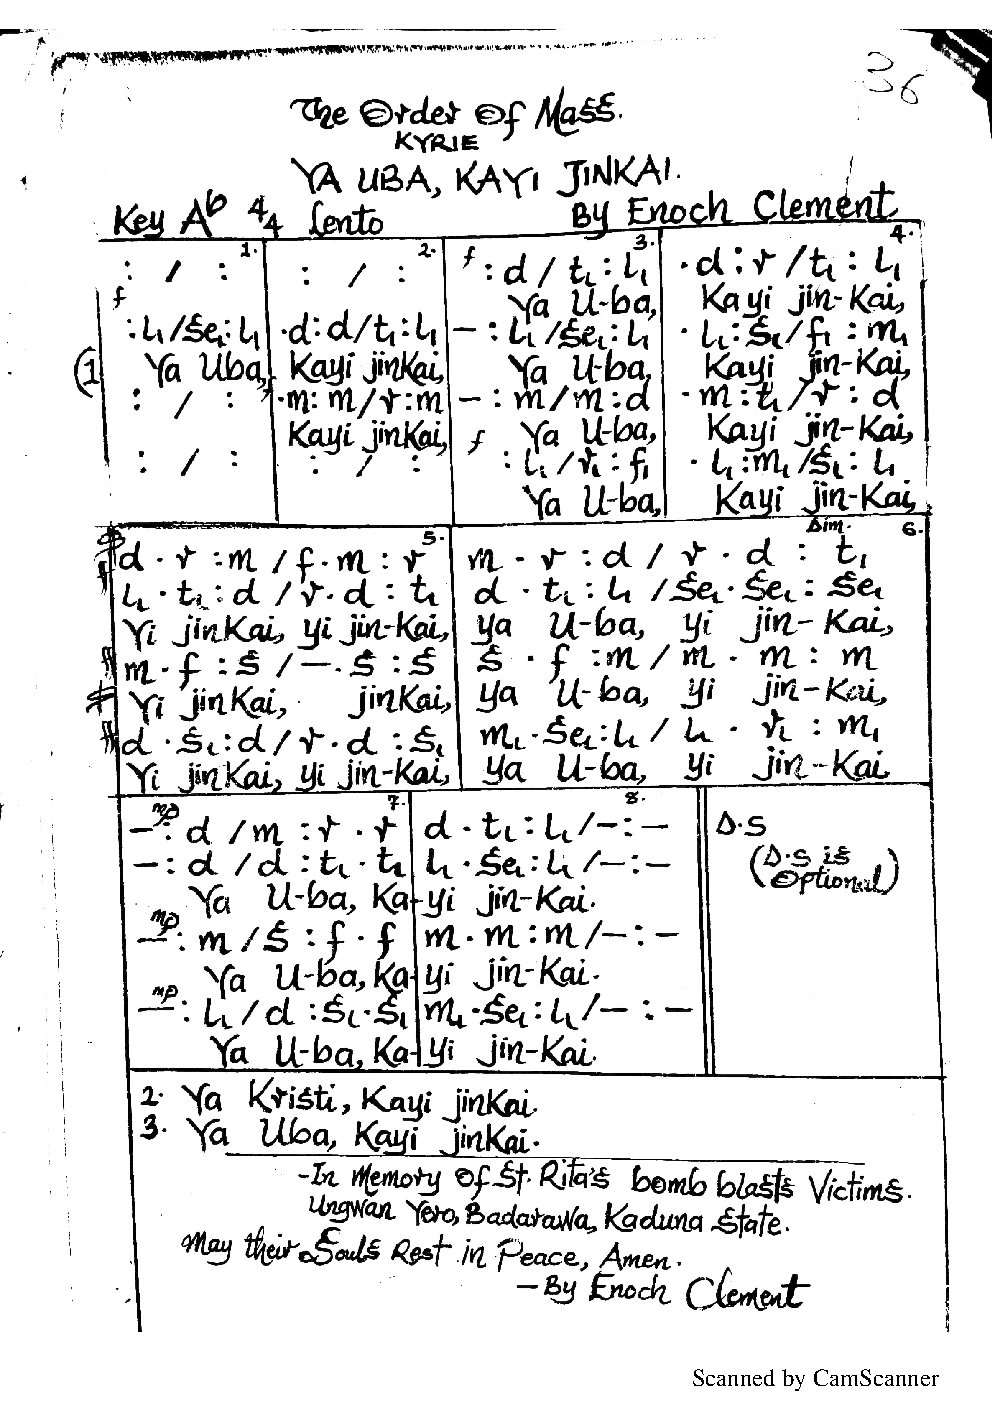 36
The Order Of Mass.
KYRIE
YA UBA, KAYI JINKAI.
Key Ab 4/4 Lento By Enoch Clement
1. 2. 3. 4.
: / : : / : f : d / t₁ : l₁ . d : r / t₁ : l₁
f Ya U-ba, Kayi jin-Kai,
: l₁ / se₁ : l₁ . d : d / t₁ : l₁ – : l₁ / se₁ : l₁ . l₁ : s₁ / f₁ : m₁
(1 Ya Uba, Kayi jinKai, Ya U-ba, Kayi jin-Kai,
: / : . m : m / r : m – : m / m : d . m : t₁ / r : d
Kayi jinKai, f Ya U-ba, Kayi jin-Kai,
: / : : / : : l₁ / r₁ : f₁ . l₁ : m₁ / s₁ : l₁
Ya U-ba, Kayi jin-Kai,
5. Dim. 6.
f d . r : m / f . m : r m . r : d / r . d : t₁
l₁ . t₁ : d / r . d : t₁ d . t₁ : l₁ / se₁ . se₁ : se₁
Yi jinKai, yi jin-Kai, ya U-ba, yi jin-Kai,
f m . f : s / – . s : s s . f : m / m . m : m
Yi jinKai, jinKai, ya U-ba, yi jin-Kai,
f d . s₁ : d / r . d : s₁ m₁ . se₁ : l₁ / l₁ . r₁ : m₁
Yi jinKai, yi jin-Kai, ya U-ba, yi jin-Kai
7. 8.
mp – : d / m : r . r d . t₁ : l₁ / – : – D.S
– : d / d : t₁ . t₁ l₁ . se₁ : l₁ / – : – (D.S is Optional)
Ya U-ba, Ka-yi jin-Kai.
mp – : m / s : f . f m . m : m / – : –
Ya U-ba, Ka-yi jin-Kai.
mp – : l₁ / d : s₁ . s₁ m₁ . se₁ : l₁ / – : –
Ya U-ba, Ka-yi jin-Kai.
2. Ya Kristi, Kayi jinKai.
3. Ya Uba, Kayi jinKai.
-In Memory Of St. Rita's bomb blasts Victims.
Ungwan Yero, Badarawa, Kaduna State.
May their Souls Rest in Peace, Amen.
- By Enoch Clement
Scanned by CamScanner